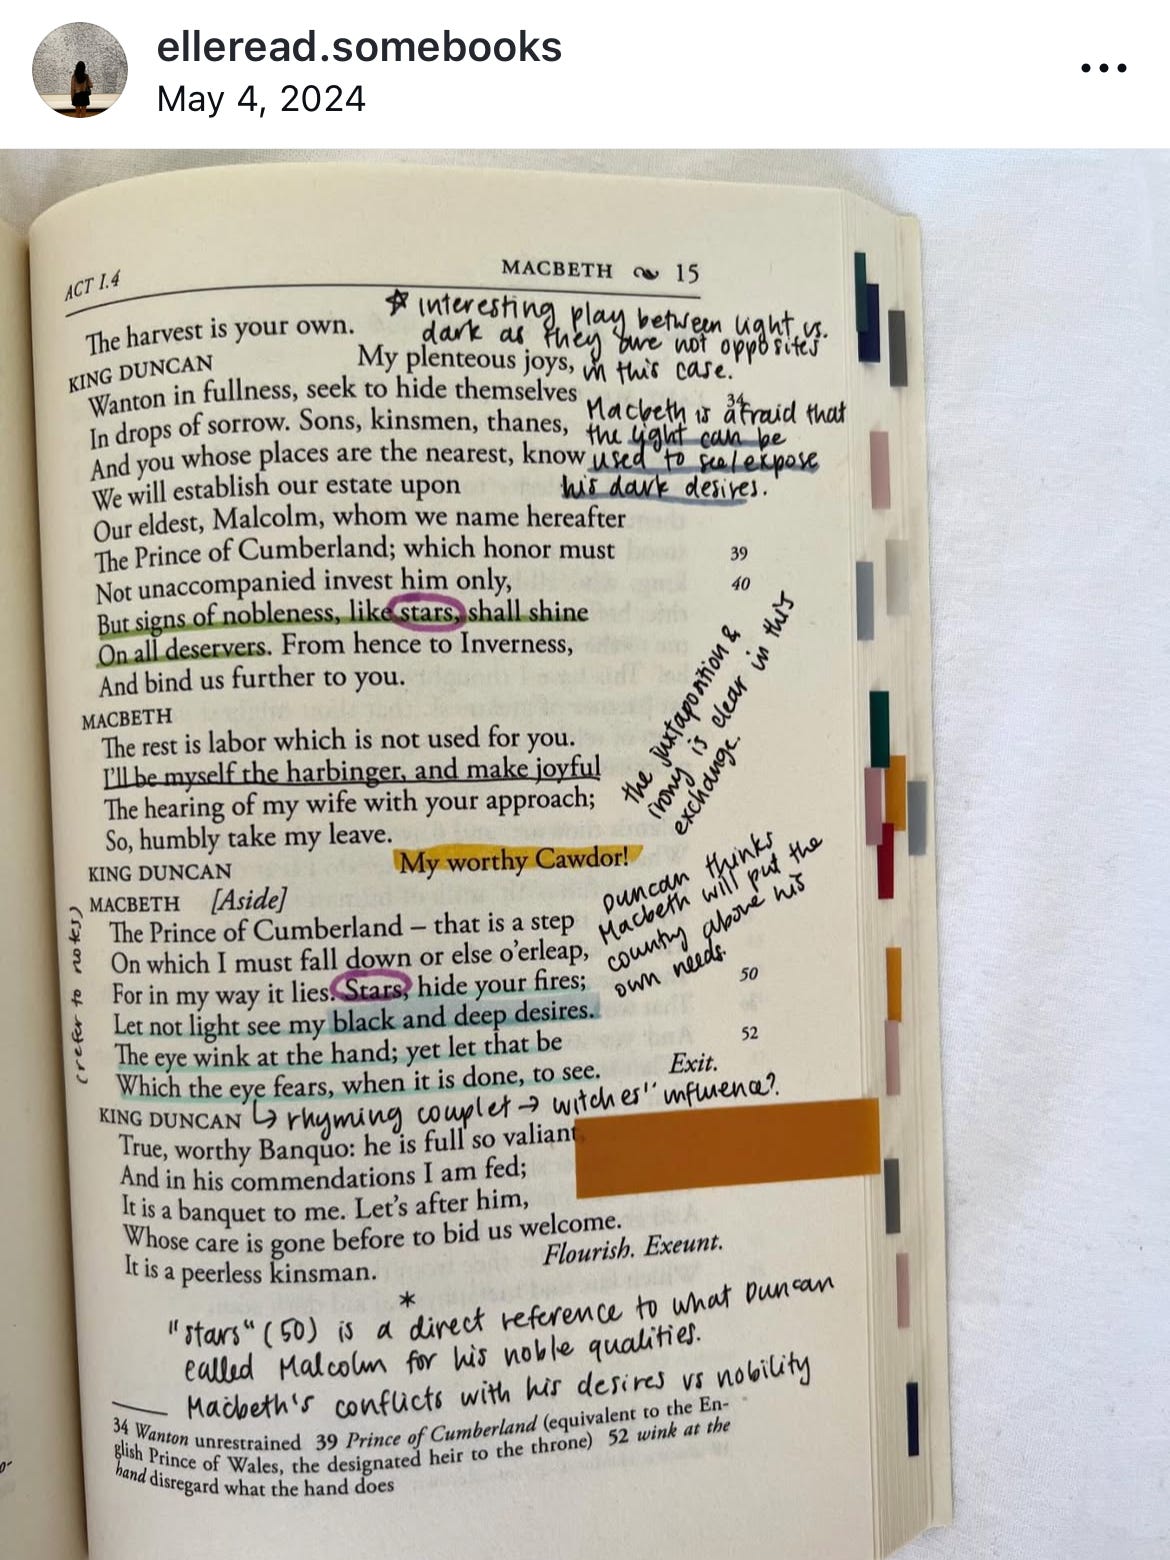 elleread.somebooks
May 4, 2024
ACT I.4
MACBETH 15
The harvest is your own.
☆ interesting play between light vs.
dark as they are not opposites
in this case.
KING DUNCAN
My plenteous joys,
Wanton in fullness, seek to hide themselves
34
In drops of sorrow. Sons, kinsmen, thanes,
And you whose places are the nearest, know
We will establish our estate upon
Macbeth is afraid that
the light can be
used to see/expose
his dark desires.
Our eldest, Malcolm, whom we name hereafter
The Prince of Cumberland; which honor must
39
Not unaccompanied invest him only,
40
But signs of nobleness, like stars, shall shine
On all deservers. From hence to Inverness,
And bind us further to you.
MACBETH
The rest is labor which is not used for you.
I'll be myself the harbinger, and make joyful
The hearing of my wife with your approach;
So, humbly take my leave.
the juxtaposition &
irony is clear in this
exchange.
KING DUNCAN
My worthy Cawdor!
Duncan thinks
Macbeth will put the
country above his
own needs.
MACBETH [Aside]
The Prince of Cumberland – that is a step
On which I must fall down or else o'erleap,
For in my way it lies. Stars, hide your fires;
50
Let not light see my black and deep desires.
The eye wink at the hand; yet let that be
52
Which the eye fears, when it is done, to see.
Exit.
(refer to notes)
↳ rhyming couplet → witches'' influence?
KING DUNCAN
True, worthy Banquo: he is full so valiant
And in his commendations I am fed;
It is a banquet to me. Let's after him,
Whose care is gone before to bid us welcome.
It is a peerless kinsman.
Flourish. Exeunt.
*
"stars" (50) is a direct reference to what Duncan
called Malcolm for his noble qualities.
Macbeth's conflicts with his desires vs nobility
34 Wanton unrestrained 39 Prince of Cumberland (equivalent to the En-
glish Prince of Wales, the designated heir to the throne) 52 wink at the
hand disregard what the hand does